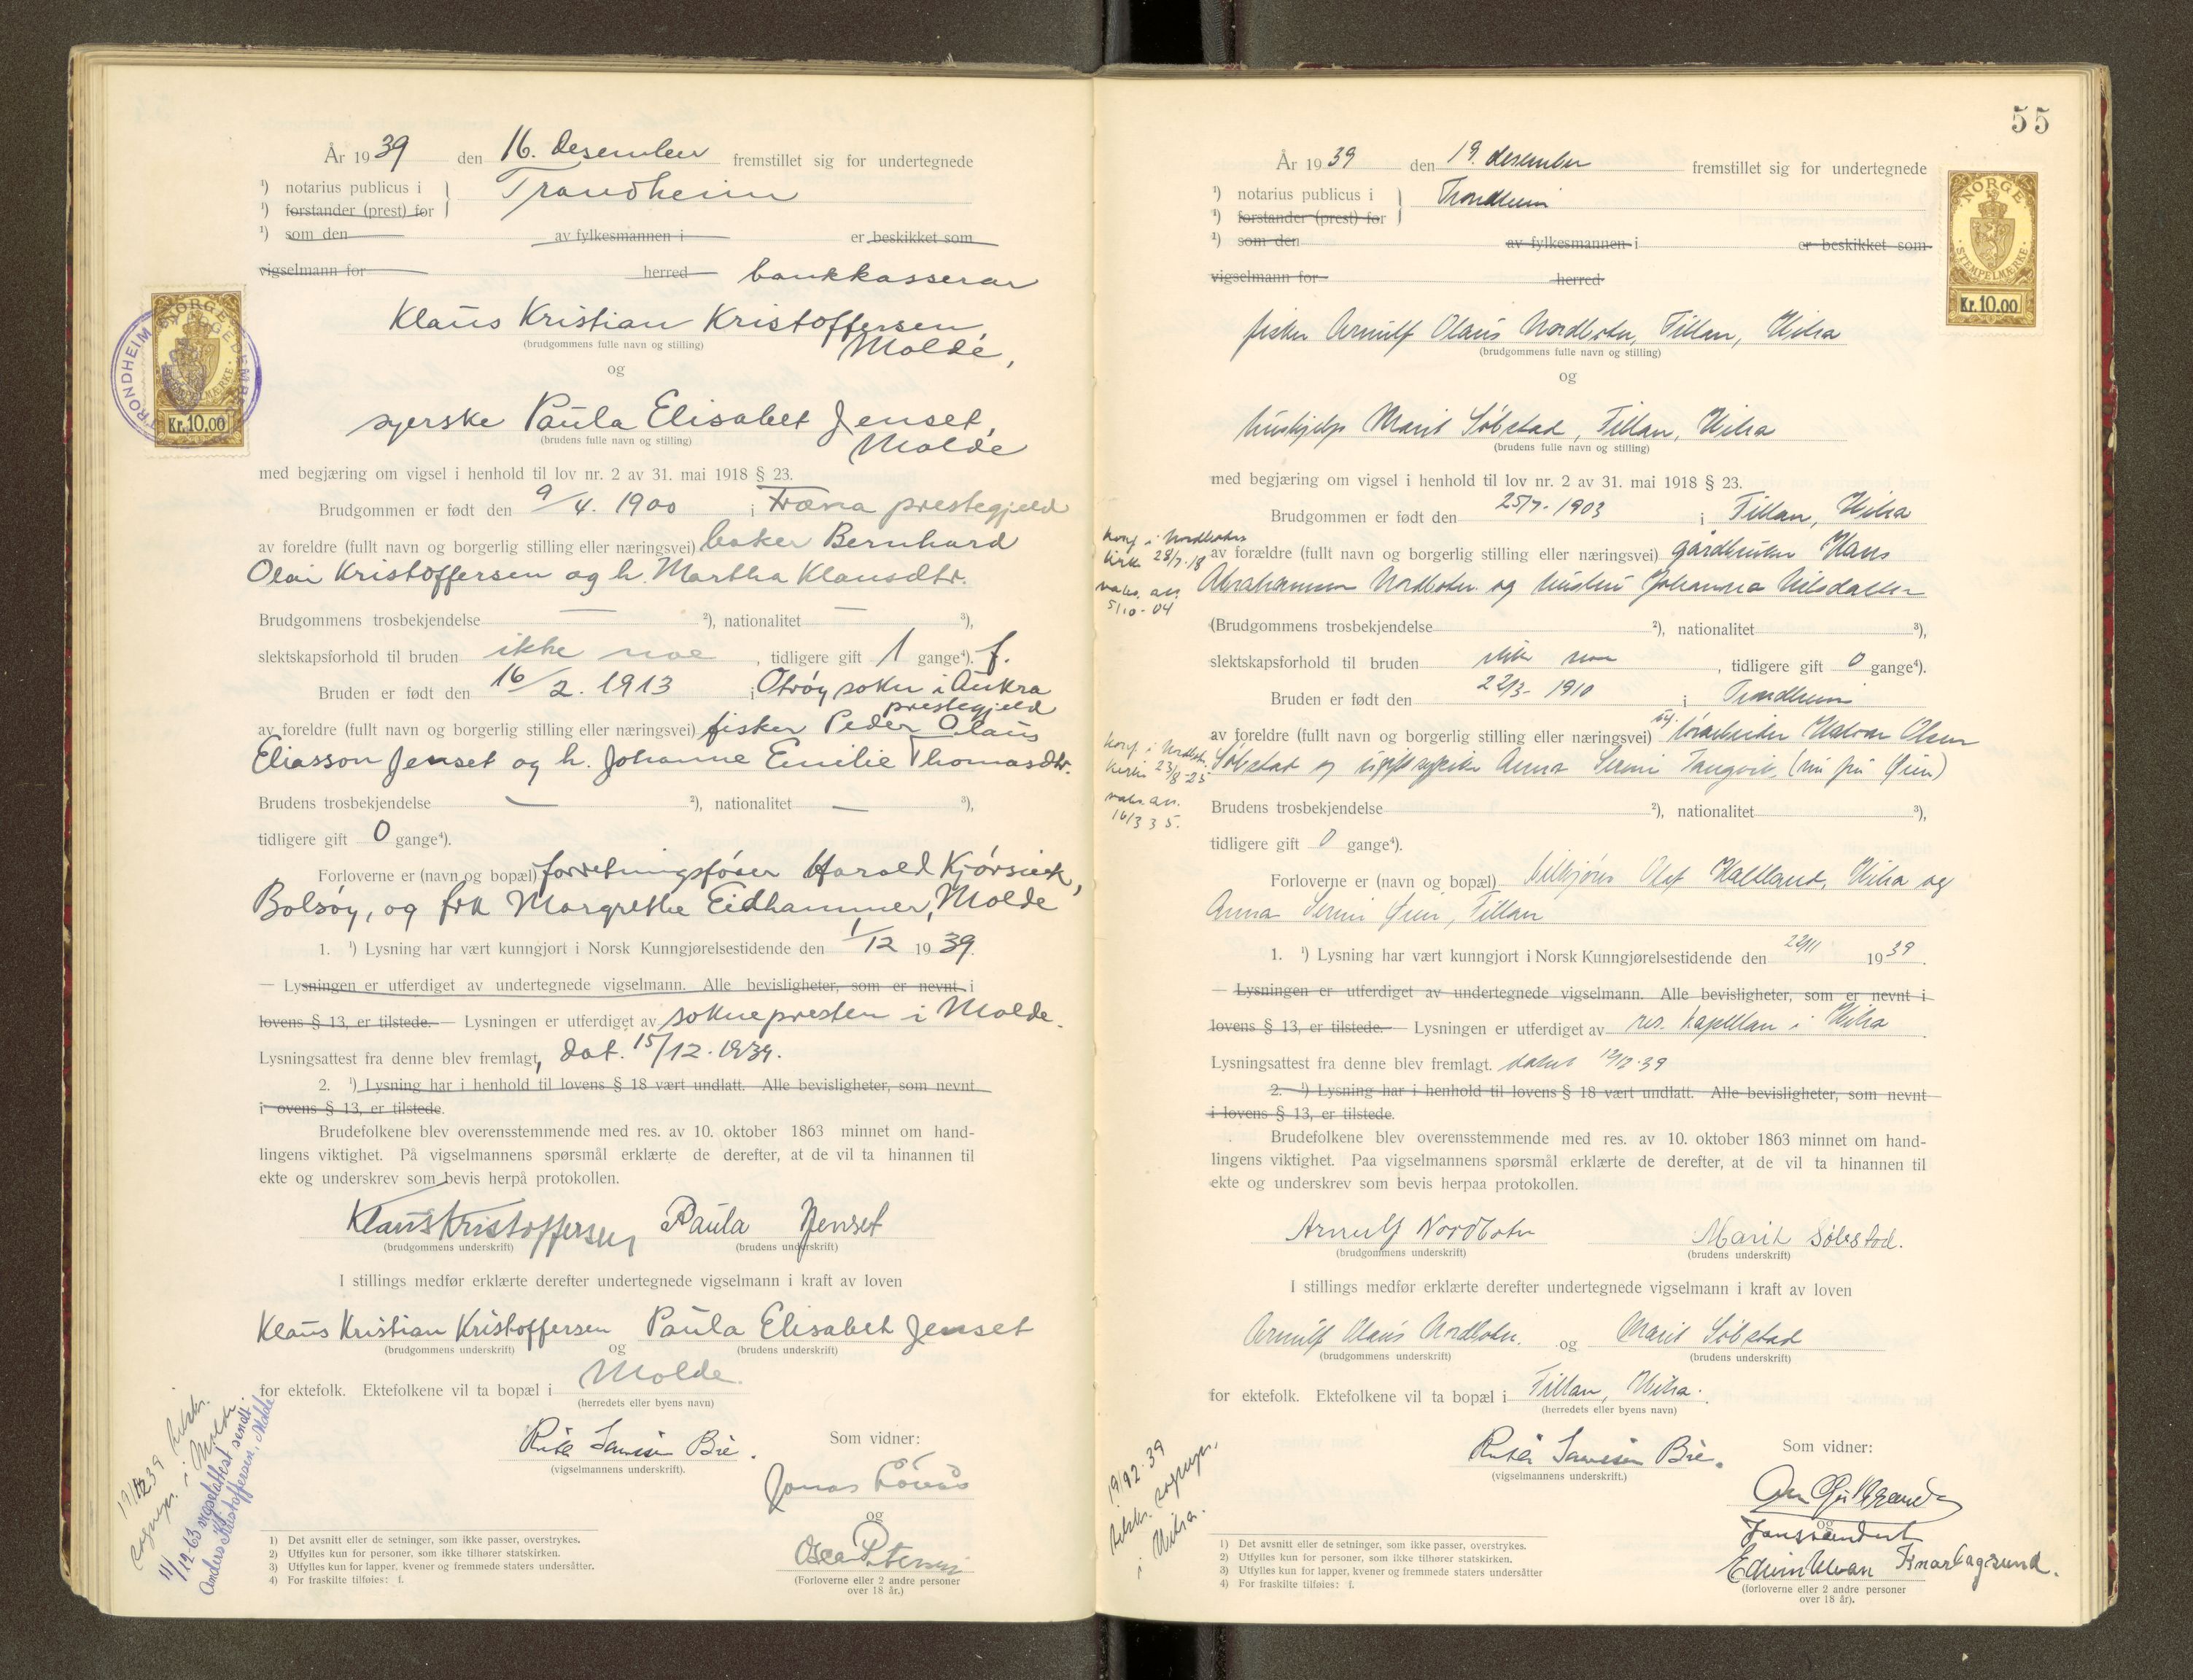 År 1939 den 16. desember fremstillet sig for undertegnede
¹) notarius publicus i } Trondheim
¹) forstander (prest) for
¹) som den av fylkesmannen i er beskikket som
vigselmann for herred bankkasserar
Klaus Kristian Kristoffersen,
(brudgommens fulle navn og stilling)
Molde,
og
syerske Paula Elisabet Jenset,
(brudens fulle navn og stilling)
Molde
med begjæring om vigsel i henhold til lov nr. 2 av 31. mai 1918 § 23.
Brudgommen er født den 9/4. 1900 i Fræna prestegjeld
av foreldre (fullt navn og borgerlig stilling eller næringsvei) baker Bernhard
Olai Kristoffersen og h. Martha Klausdtr.
Brudgommens trosbekjendelse — ²), nationalitet — ³),
slektskapsforhold til bruden ikke noe, tidligere gift 1 gange⁴). f.
Bruden er født den 16/2. 1913 i Otrøy sokn i Aukra
prestegjeld
av foreldre (fullt navn og borgerlig stilling eller næringsvei) fisker Peder Olaus
Eliasson Jenset og h. Johanne Emilie Thomasdtr.
Brudens trosbekjendelse — ²), nationalitet — ³),
tidligere gift 0 gange⁴).
Forloverne er (navn og bopæl) forretningsfører Harald
Bolsøy, og frk Margrethe Eidhammer, Molde
1. ¹) Lysning har vært kunngjort i Norsk Kunngjørelsestidende den 1/12 1939.
— Lysningen er utferdiget av undertegnede vigselmann. Alle bevisligheter, som er nevnt i
lovens § 13, er tilstede. — Lysningen er utferdiget av soknepresten i Molde.
Lysningsattest fra denne blev fremlagt, dat. 15/12.1939.
2. ¹) Lysning har i henhold til lovens § 18 vært undlatt. Alle bevisligheter, som nevnt
i ovens § 13, er tilstede.
Brudefolkene blev overensstemmende med res. av 10. oktober 1863 minnet om hand-
lingens viktighet. På vigselmannens spørsmål erklærte de derefter, at de vil ta hinannen til
ekte og underskrev som bevis herpå protokollen.
Klaus Kristoffersen Paula Jenset
(brudgommens underskrift) (brudens underskrift)
I stillings medfør erklærte derefter undertegnede vigselmann i kraft av loven
Klaus Kristian Kristoffersen og Paula Elisabet Jenset
(brudgommens underskrift) (brudens underskrift)
for ektefolk. Ektefolkene vil ta bopæl i Molde.
(herredets eller byens navn)
Bie.
(vigselmannens underskrift).
Som vidner:
Jonas
og
(Forloverne eller 2 andre personer
over 18 år.)
19/12 39 sogнepr. i Molde.
11/12-63 vigselattest sendt
Anders Kristoffersen, Molde
1) Det avsnitt eller de setninger, som ikke passer, overstrykes.
2) Utfylles kun for personer, som ikke tilhører statskirken.
3) Utfylles kun for lapper, kvener og fremmede staters undersåtter.
4) For fraskilte tilføies: f.
TRONDHEIM
NORGE
STEMPELMÆRKE
Kr. 10.00
55
År 1939 den 19. desember fremstillet sig for undertegnede
¹) notarius publicus i } Trondheim
¹) forstander (prest) for
¹) som den av fylkesmannen i er beskikket som
vigselmann for herred
NORGE
STEMPELMÆRKE
Kr. 10.00
fisker Arnulf Olaus Nordbotn, Fillan, Hitra
(brudgommens fulle navn og stilling)
og
hushjelp Marit Søbstad, Fillan, Hitra
(brudens fulle navn og stilling)
med begjæring om vigsel i henhold til lov nr. 2 av 31. mai 1918 § 23.
Brudgommen er født den 25/7. 1903 i Fillan, Hitra
konf. i Nordbotn
kirke 28/7.18
vaks. att.
5/10-04
av forældre (fullt navn og borgerlig stilling eller næringsvei) gårdbruker Hans
Abrahamsen Nordbotn og hustru Johanna Nilsdatter
(Brudgommens trosbekjendelse ²), nationalitet ³),
slektskapsforhold til bruden ikke noe, tidligere gift 0 gange⁴).
Bruden er født den 22/3-1910 i Trondheim
konf. i Nordbotn
kirke 23/8-25
vaks. att.
16/3 35.
av foreldre (fullt navn og borgerlig stilling eller næringsvei) Halvor Olsen
Søbstad og Anna Serine Tangvik, (nu fru Øien)
Brudens trosbekjendelse ²), nationalitet ³),
tidligere gift 0 gange⁴).
Forloverne er (navn og bopæl) Olaf Hitra og
Anna Serine Øien, Fillan
1. ¹) Lysning har vært kunngjort i Norsk Kunngjørelsestidende den 22/11 1939.
— Lysningen er utferdiget av undertegnede vigselmann. Alle bevisligheter, som er nevnt i
lovens § 13, er tilstede. — Lysningen er utferdiget av res. kapellan i Hitra.
Lysningsattest fra denne blev fremlagt. datert 12/12.39
2. ¹) Lysning har i henhold til lovens § 18 vært undlatt. Alle bevisligheter, som nevnt
i lovens § 13, er tilstede.
Brudefolkene blev overensstemmende med res. av 10. oktober 1863 minnet om hand-
lingens viktighet. Paa vigselmannens spørsmål erklærte de derefter, at de vil ta hinannen til
ekte og underskrev som bevis herpaa protokollen.
Arnulf Nordbotn Marit Søbstad.
(brudgommens underskrift) (brudens underskrift)
I stillings medfør erklærte derefter undertegnede vigselmann i kraft av loven
Arnulf Olaus Nordbotn. og Marit Søbstad
(brudgommens underskrift) (brudens underskrift)
for ektefolk. Ektefolkene vil ta bopæl i Fillan, Hitra.
(herredets eller byens navn)
Bie.
(vigselmannens underskrift.)
Som vidner:
og
Edvin Ulvan Knarlagsund.
(forloverne eller 2 andre personer
over 18 år).
19/12.39
sognepr.
i Hitra.
1) Det avsnitt eller de setninger, som ikke passer, overstrykes.
2) Utfylles kun for personer, som ikke tilhører statskirken.
3) Utfylles kun for lapper, kvener og fremmede staters undersåtter
4) For fraskilte tilføies: f.